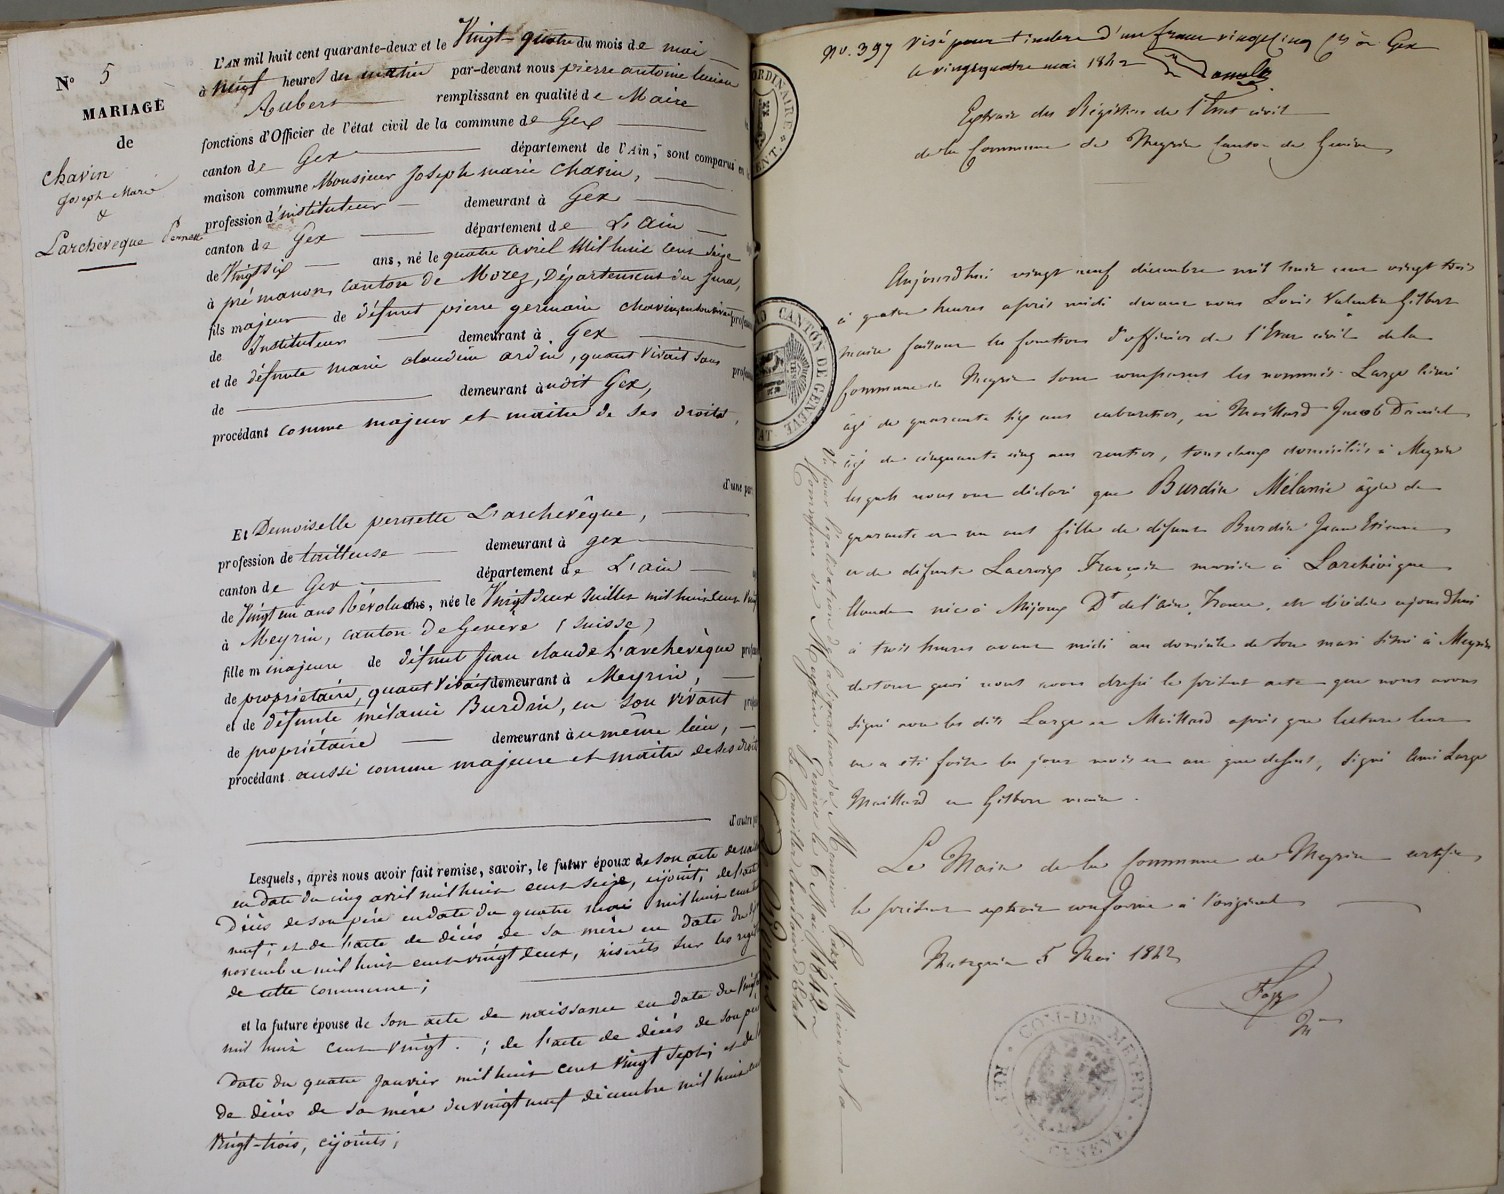 N° 5
MARIAGE
de
Chavin
Joseph Marie
&
Larchevêque Pernette
L'AN mil huit cent quarante-deux et le Vingt-quatre du mois de mai
à neuf heures du matin par-devant nous pierre antoine
Aubert remplissant en qualité de Maire
fonctions d'Officier de l'état civil de la commune de Gex
canton de Gex département de l'Ain, sont comparus en
maison commune Monsieur Joseph marie Chavin,
profession d'instituteur demeurant à Gex
canton de Gex département de L'ain
de Vingt six ans, né le quatre avril mil huit cent seize
à prémanon, canton de Morez, Département du Jura,
fils majeur de défunt pierre germain chavin, en son vivant profession
de Instituteur demeurant à Gex
et de défunte marie claudine, quant vivait sans profession
de demeurant à udit Gex,
procédant comme majeur et maître de ses droits,
d'une part
Et Demoiselle pernette L'archevêque,
profession de tailleuse demeurant à gex
canton de Gex département de L'ain
de Vingt un ans Révolus ans, née le Vingt deux Juillet mil huit cent vingt
à Meyrin, canton de Genève (Suisse)
fille majeure de défunt Jean claude L'archevêque
de propriétaire, quant vivait demeurant à Meyrin,
et de défunte mélanie Burdin, en son vivant
de propriétaire demeurant à u même lieu,
procédant aussi comme majeure et maître de ses droits
d'autre part
Lesquels, après nous avoir fait remise, savoir, le futur époux de son acte de
en date du cinq avril mil huit cent seize, cijoint, de l'acte
Décès de son père en date du quatre mai mil huit cent
neuf; et de l'acte de décès de sa mère en date du
novembre mil huit cent vingt deux, inscrits sur les
de cette commune;
et la future épouse de son acte de naissance en date du
mil huit cent vingt.; de l'acte de décès de son père
date du quatre Janvier mil huit cent vingt sept; et de
de décès de sa mère du vingt neuf décembre mil huit cent
vingt-trois, cijoints;
No. 397 Visé pour timbre d'un franc vingt cinq à Gex
le vingt quatre mai 1842
Extrait des Régistres de l'Etat civil
de la Commune de Meyrin Canton de Genève
Aujourdhui vingt neuf décembre mil huit cent vingt trois
à quatre heures après midi devant nous Louis Valentin Gilbert
maire faisant les fonctions d'officier de l'Etat civil de la
Commune de Meyrin sont comparus les nommés Large Aimé
âgé de quarante six ans cabaretier, et Maillard Jacob Daniel
âgé de cinquante cinq ans rentier, tous deux domiciliés à Meyrin
lesquels nous ont déclaré que Burdin Mélanie âgée de
quarante et un ans fille de défunt Burdin Jean Etienne
et de défunte Lacroix Françoise mariée à Larchevêque
Claude née à Mijoux Dt de l'ain, France, est décédée aujourdhui
à trois heures avant midi au domicile de son mari situé à Meyrin
de tout quoi nous avons dressé le présent acte que nous avons
signé avec les dits Large et Maillard après que lecture leur
en a été faite les jour mois et an que dessus, signé Large
Maillard et Gilbert maire.
Le Maire de la Commune de Meyrin certifie
le présent extrait conforme à l'original
Meyrin 5 Mai 1842
Vu pour légalisation de la signature de Monsieur Maire de la
Commune de Meyrin. Genève le 6 Mai 1842
Le Conseiller Secrétaire d'Etat
CANTON DE GENÈVE
COM. DE MEYRIN